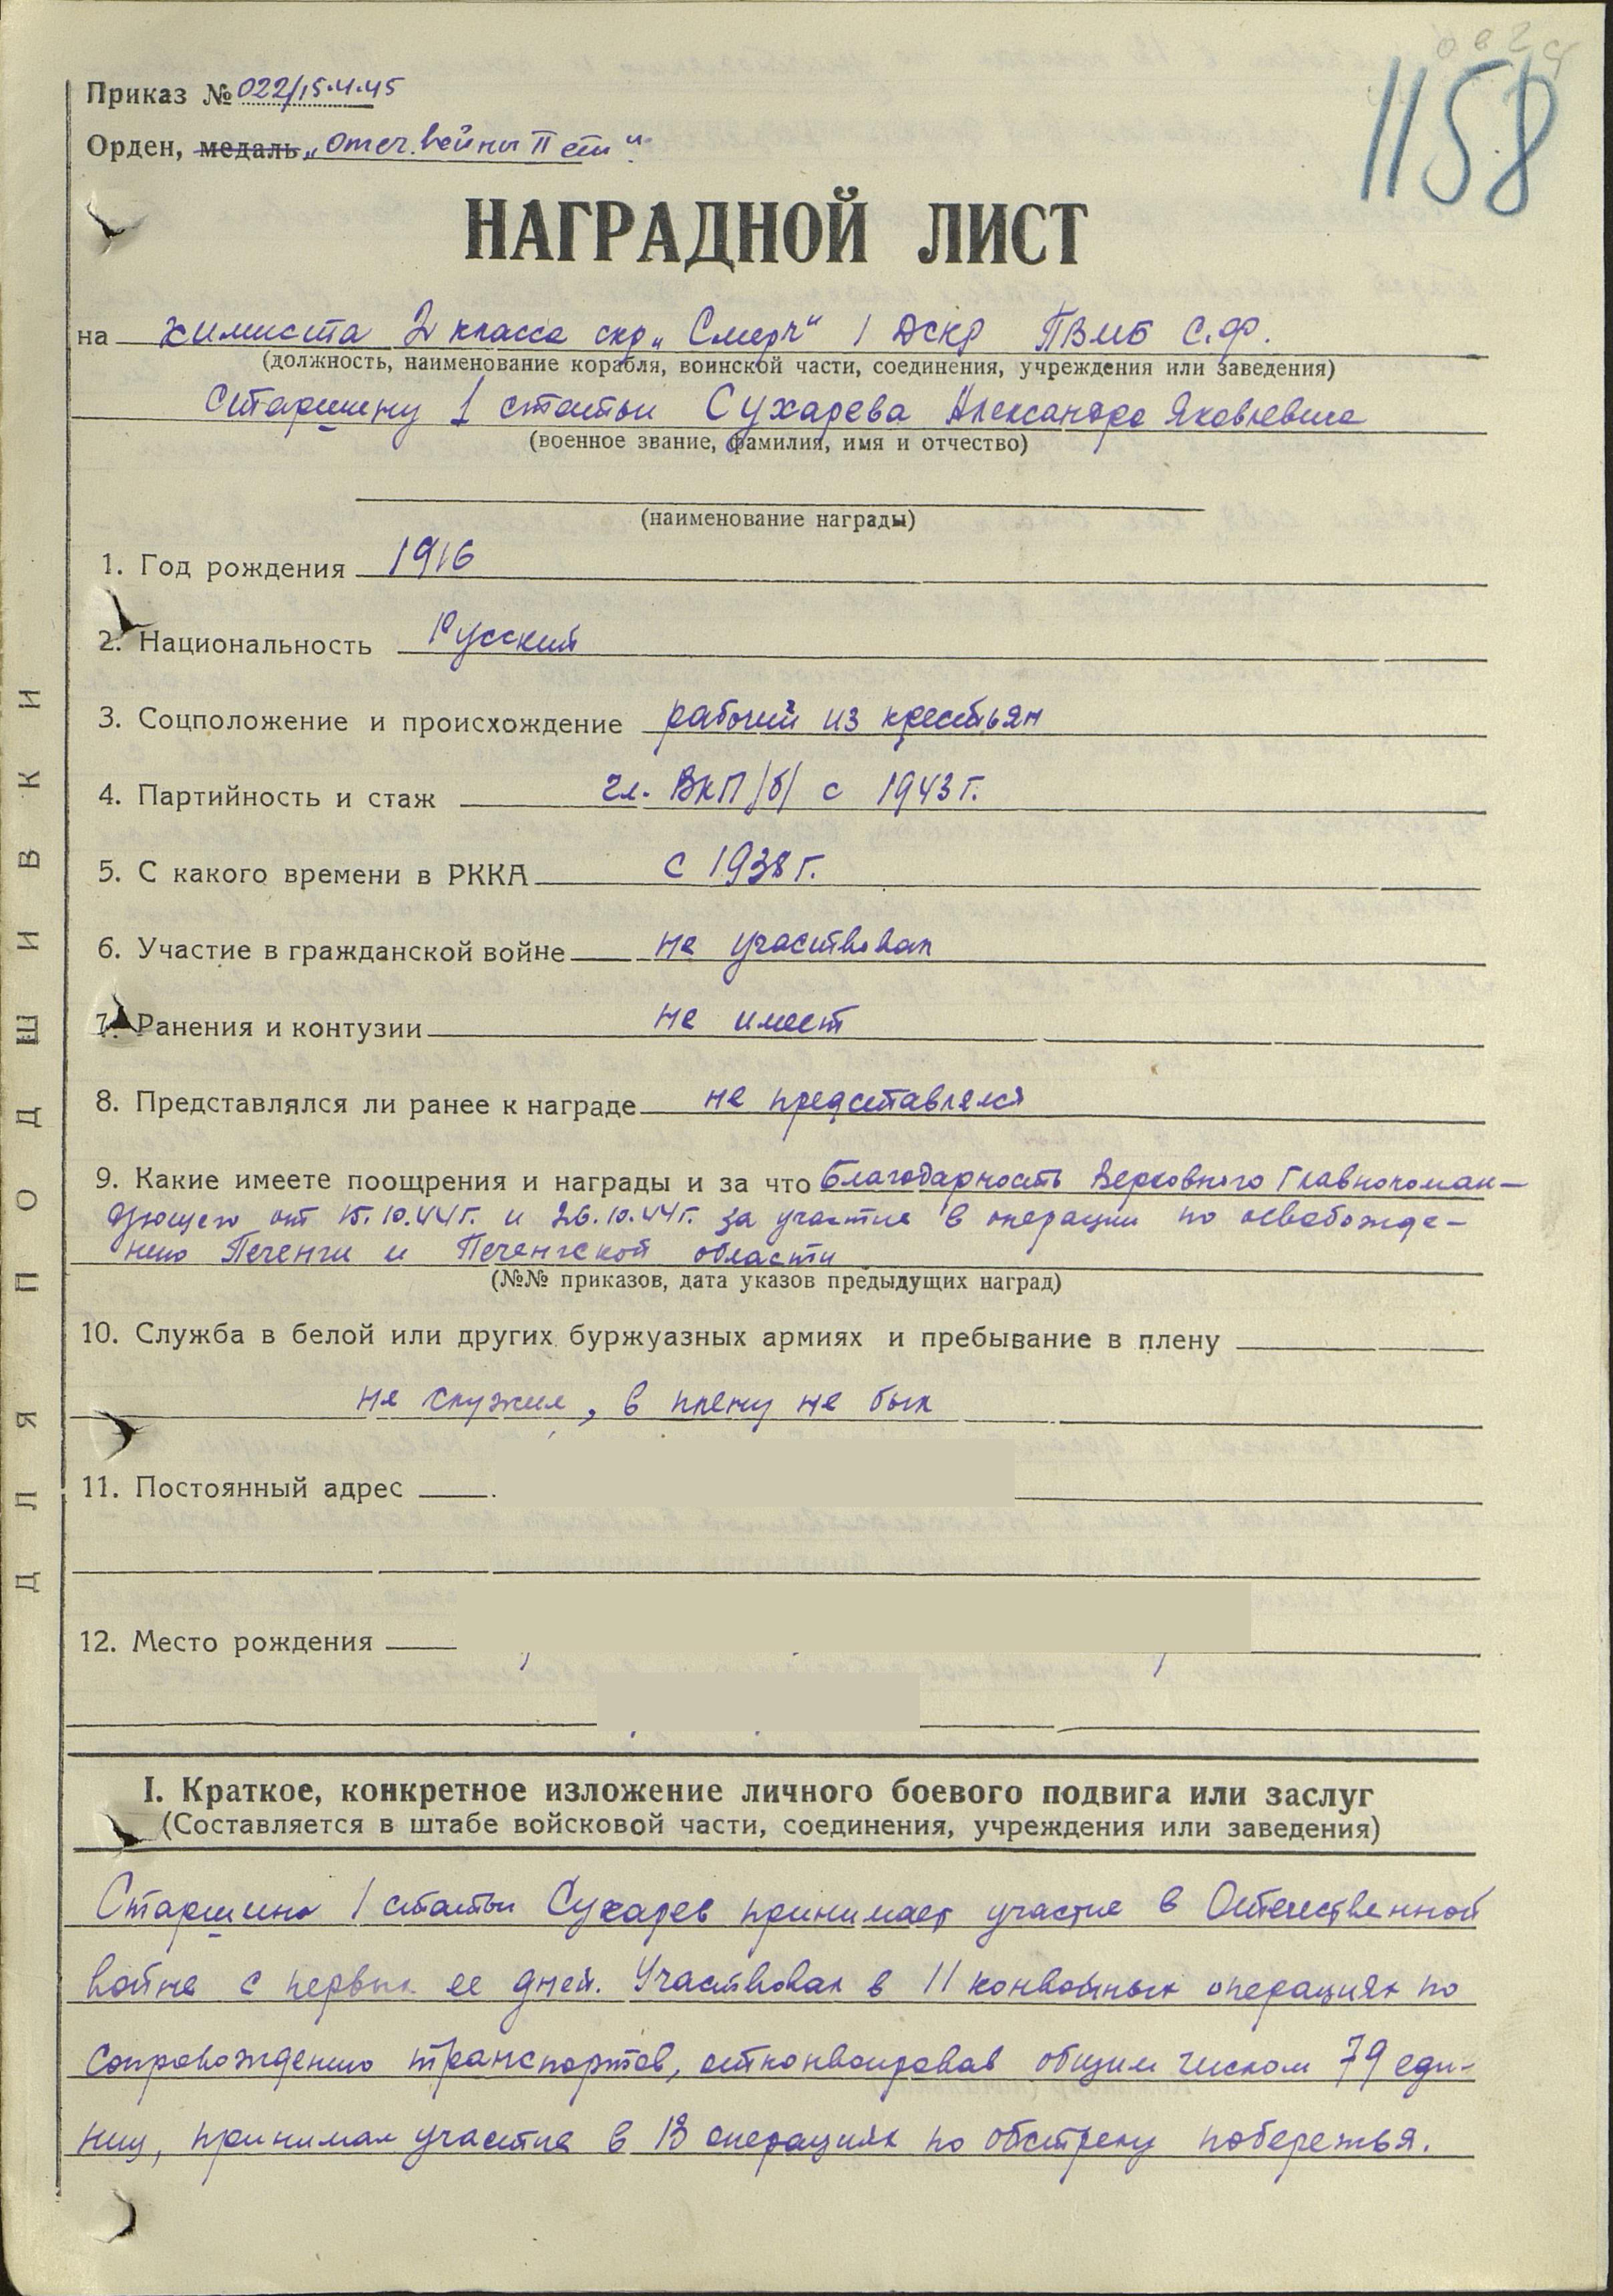 1158
Приказ № 022/15.4.45
Орден, медаль „Отеч. войны II ст“
НАГРАДНОЙ ЛИСТ
на химиста 2 класса скр „Смерч“ 1 ДСКР ПВМБ С.Ф.
(должность, наименование корабля, воинской части, соединения, учреждения или заведения)
Старшину 1 статьи Сухарева Александра Яковлевича
(военное звание, фамилия, имя и отчество)
(наименование награды)
1. Год рождения 1916
2. Национальность Русский
3. Соцположение и происхождение рабочий из крестьян
4. Партийность и стаж чл. ВКП/б/ с 1943 г.
5. С какого времени в РККА с 1938 г.
6. Участие в гражданской войне не участвовал
7. Ранения и контузии не имеет
8. Представлялся ли ранее к награде не представлялся
9. Какие имеете поощрения и награды и за что Благодарность Верховного Главнокоман-
дующего от 15.10.44 г. и 26.10.44 г. за участие в операции по освобожде-
нию Печенги и Печенгской области
(№№ приказов, дата указов предыдущих наград)
10. Служба в белой или других буржуазных армиях и пребывание в плену
не служил, в плену не был
11. Постоянный адрес
12. Место рождения
I. Краткое, конкретное изложение личного боевого подвига или заслуг
(Составляется в штабе войсковой части, соединения, учреждения или заведения)
Старшина 1 статьи Сухарев принимает участие в Отечественной
войне с первых ее дней. Участвовал в 11 конвойных операциях по
сопровождению транспортов, отконвоировав общим числом 79 еди-
ниц, принимал участие в 13 операциях по обстрелу побережья.
ДЛЯ ПОДШИВКИ